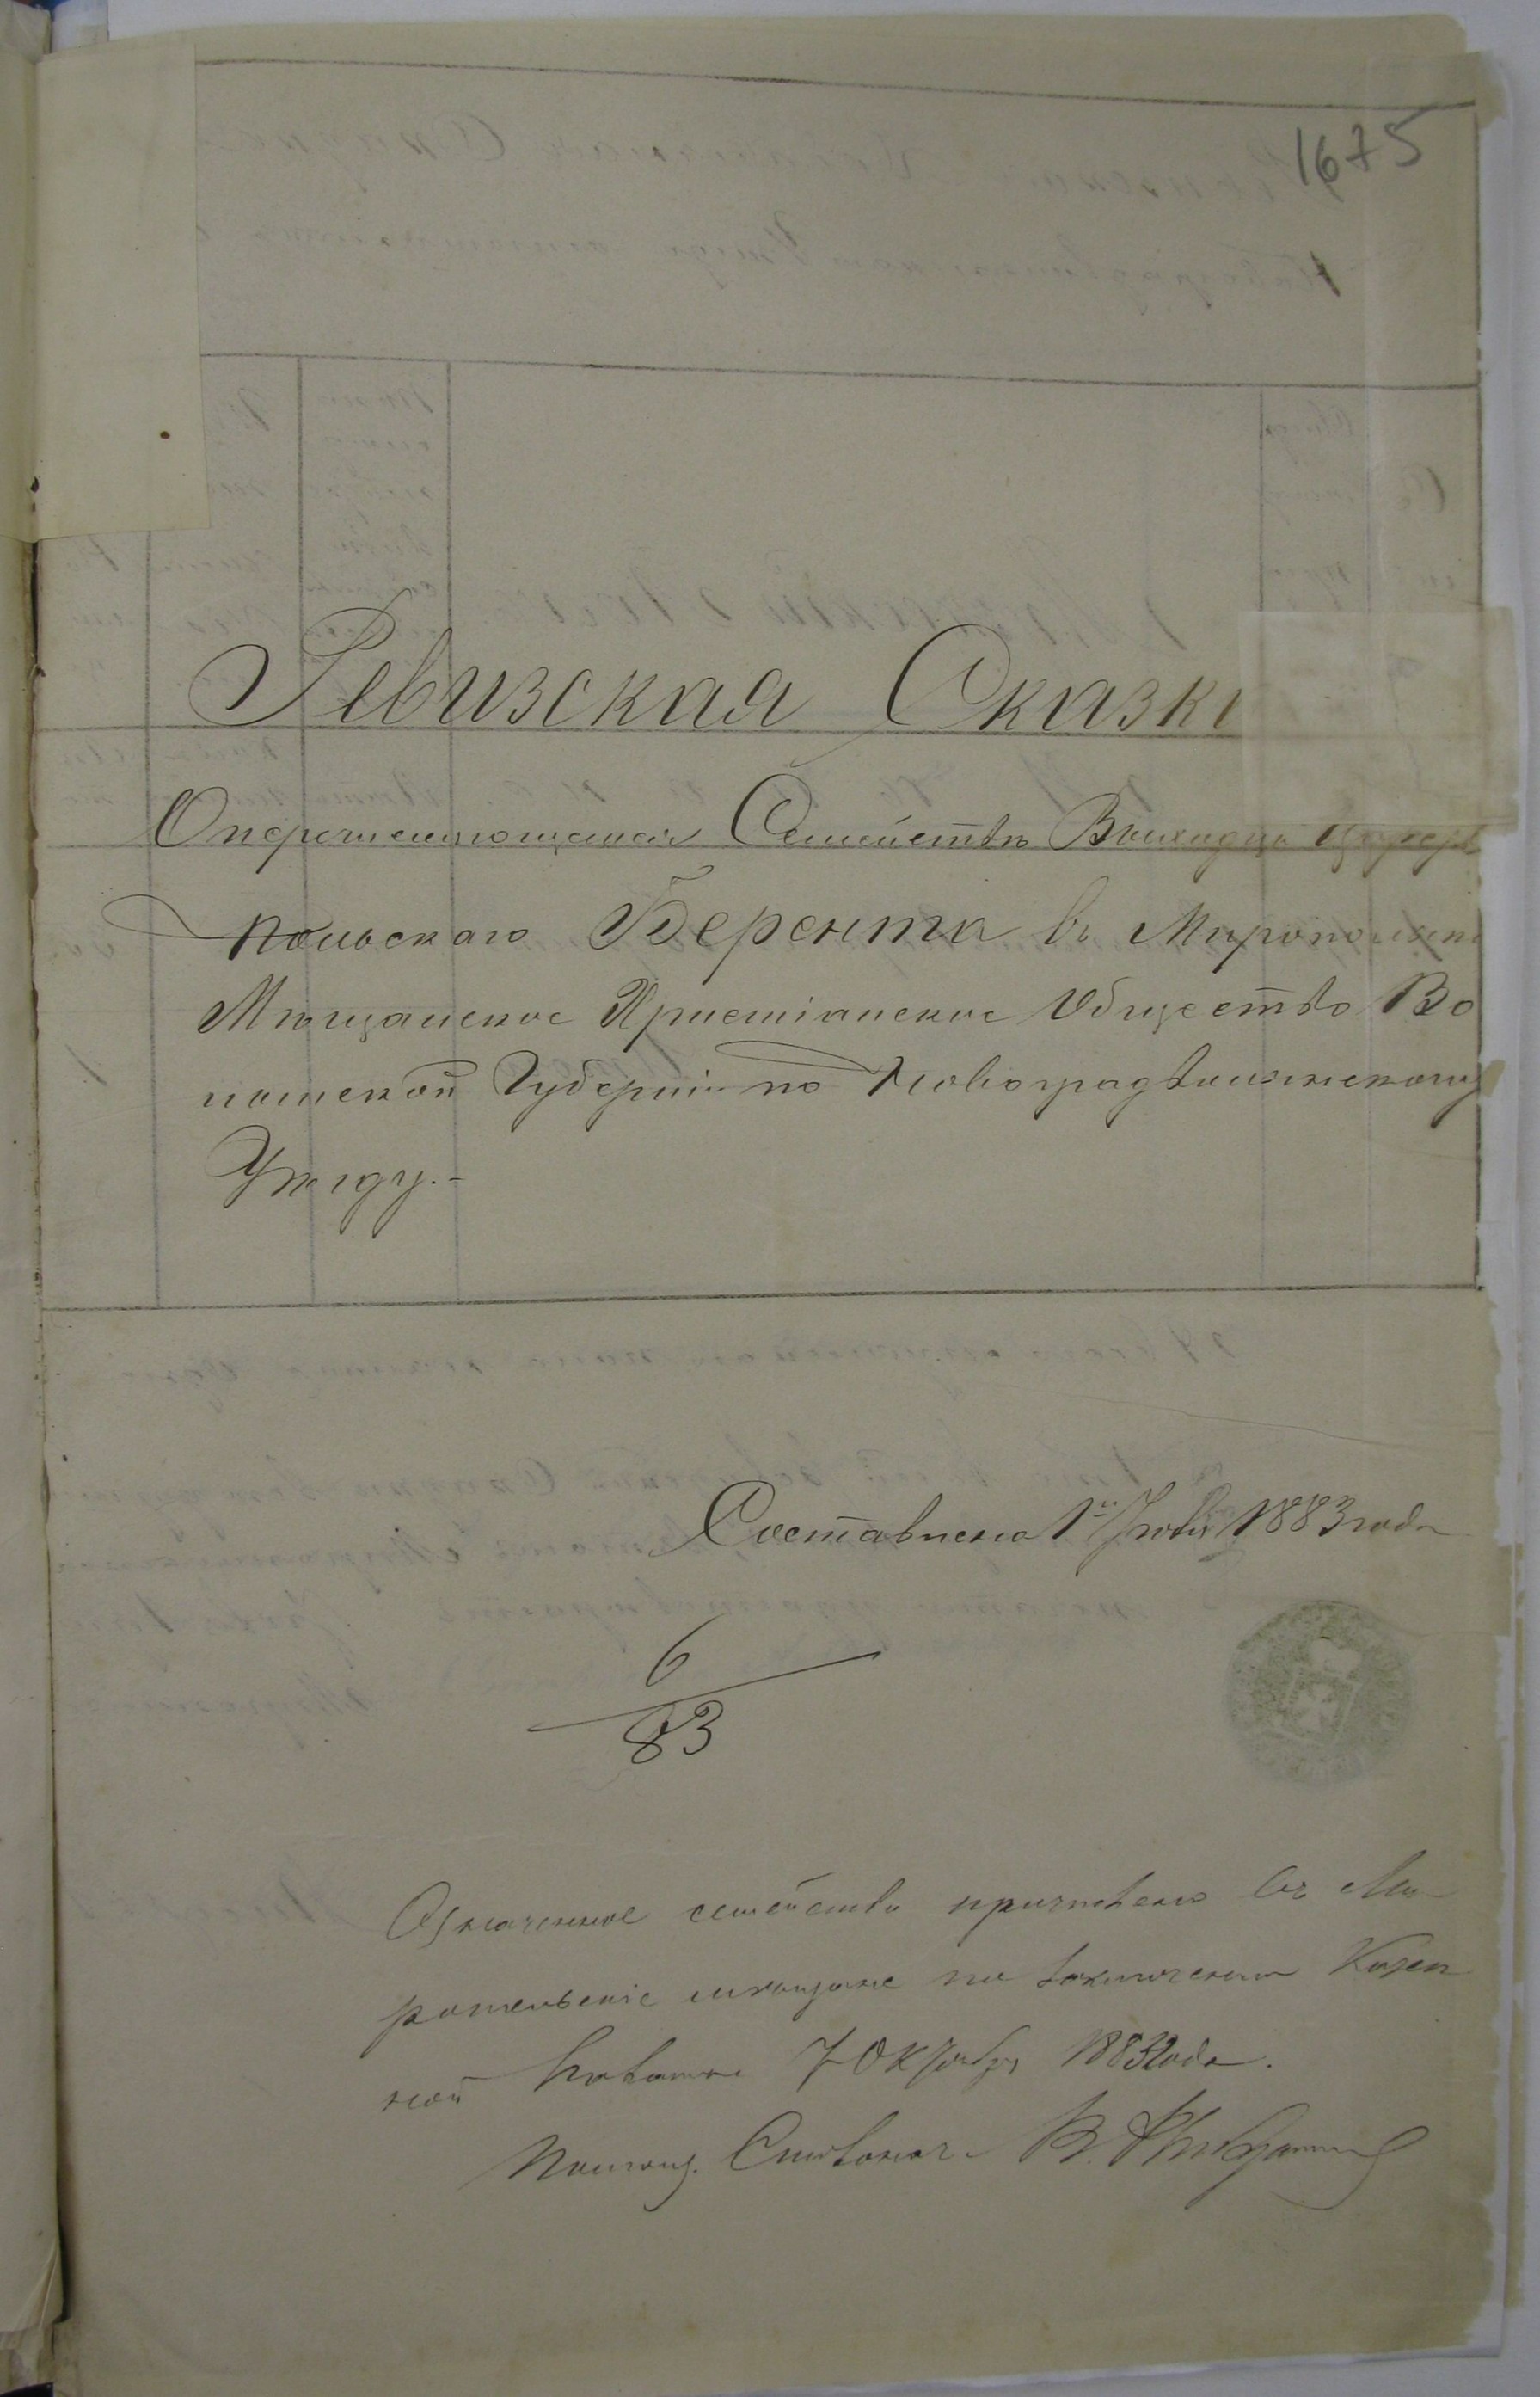 1675
Ревизская Сказка
О перечисляющемся Семействѣ Выходца Царства
Польскаго Берента въ Миропольское
Мѣщанское Христіанское Общество Во
лынской Губерніи по Новоградволынскому
Уѣзду.-
Составлена 1го 1883 года
6
83
Означенное семейство причислено въ Ми-
ропольскіе мѣщане по заключению Казен
ной Палаты 7 Октября 1883 года.
Помощ. В.